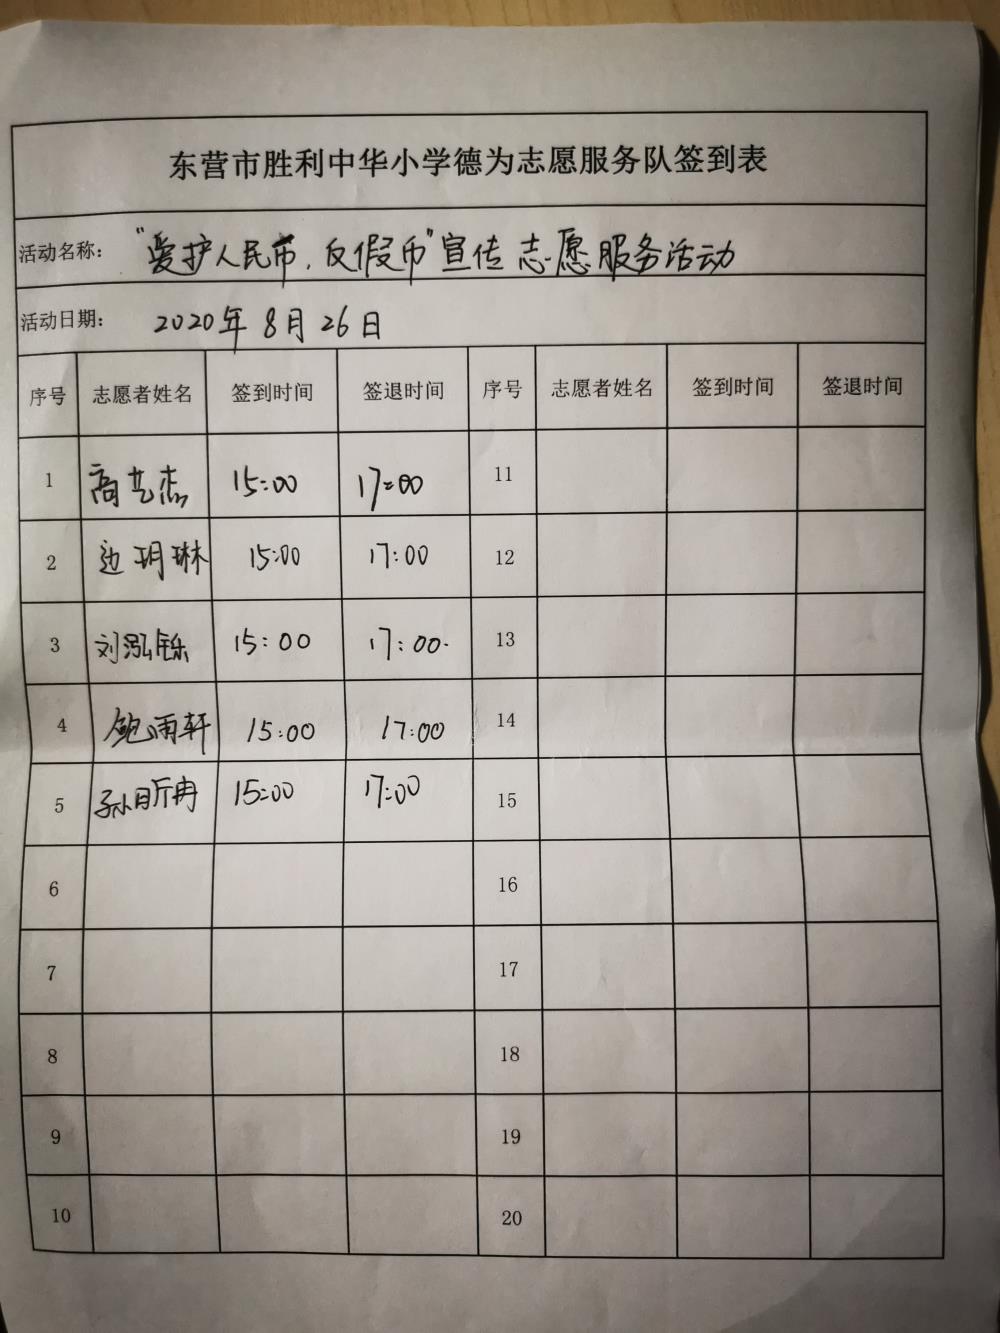 东营市胜利中华小学德为志愿服务队签到表
活动名称： “爱护人民币，反假币”宣传志愿服务活动
活动日期： 2020年8月26日
序号 志愿者姓名 签到时间 签退时间 序号 志愿者姓名 签到时间 签退时间
1 高艺杰 15:00 17:00 11
2 边玥琳 15:00 17:00 12
3 刘泓铄 15:00 17:00. 13
4 鲍雨轩 15:00 17:00 14
5 孙昕冉 15:00 17:00 15
6 16
7 17
8 18
9 19
10 20